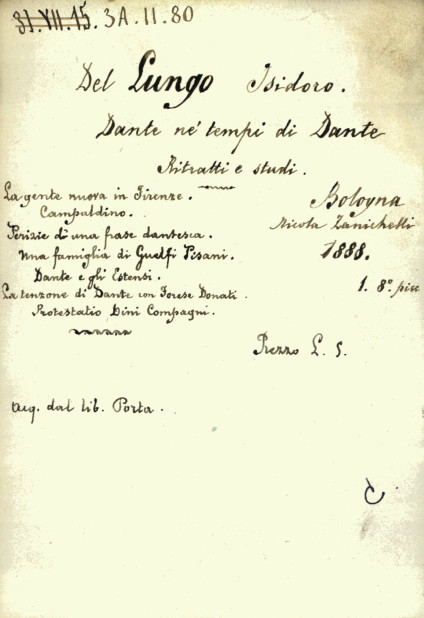 31.VII.15. 3A.II.80
Del Lungo Isidoro.
Dante ne' tempi di Dante
Ritratti e studi.
La gente nuova in Firenze.
Campaldino.
Perizie di una frase dantesca.
Una famiglia di Guelfi Pisani.
Dante e gli Estensi.
La tenzone di Dante con Forese Donati.
Protestatio Dini Compagni.
Bologna
Nicola Zanichelli
1888.
1. 8º picc
Prezzo L. 5.
Acq. dal lib. Porta.